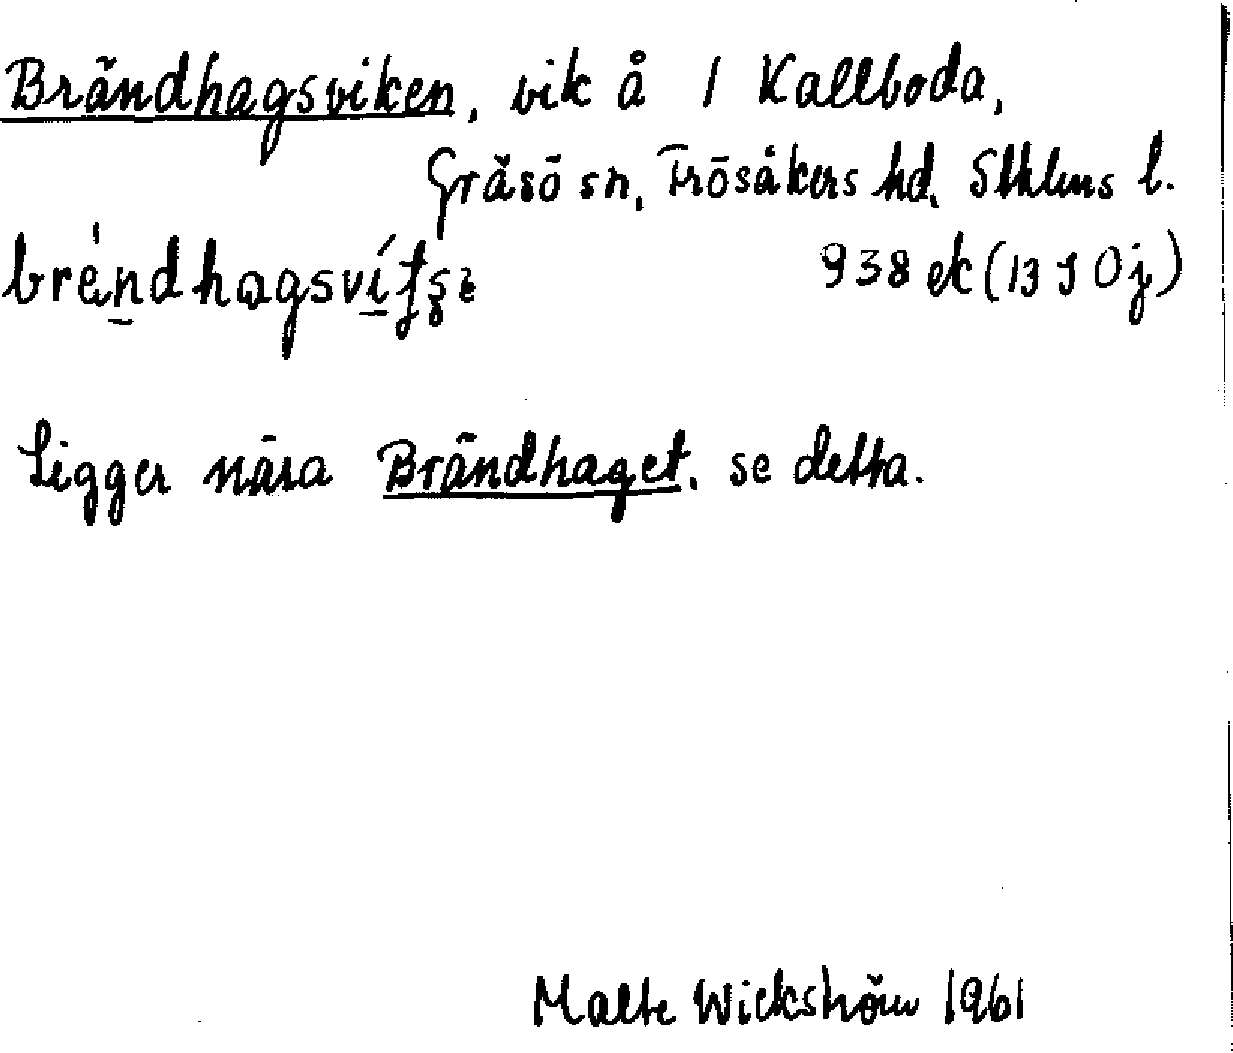 Brändhagsviken, vik å 1 Kallboda,
Gräsö sn, Frösåkers hd, Sthlms l.
938 ek (13 I 0j)
Ligger nära Brändhaget, se detta.
Malte Wickström 1961